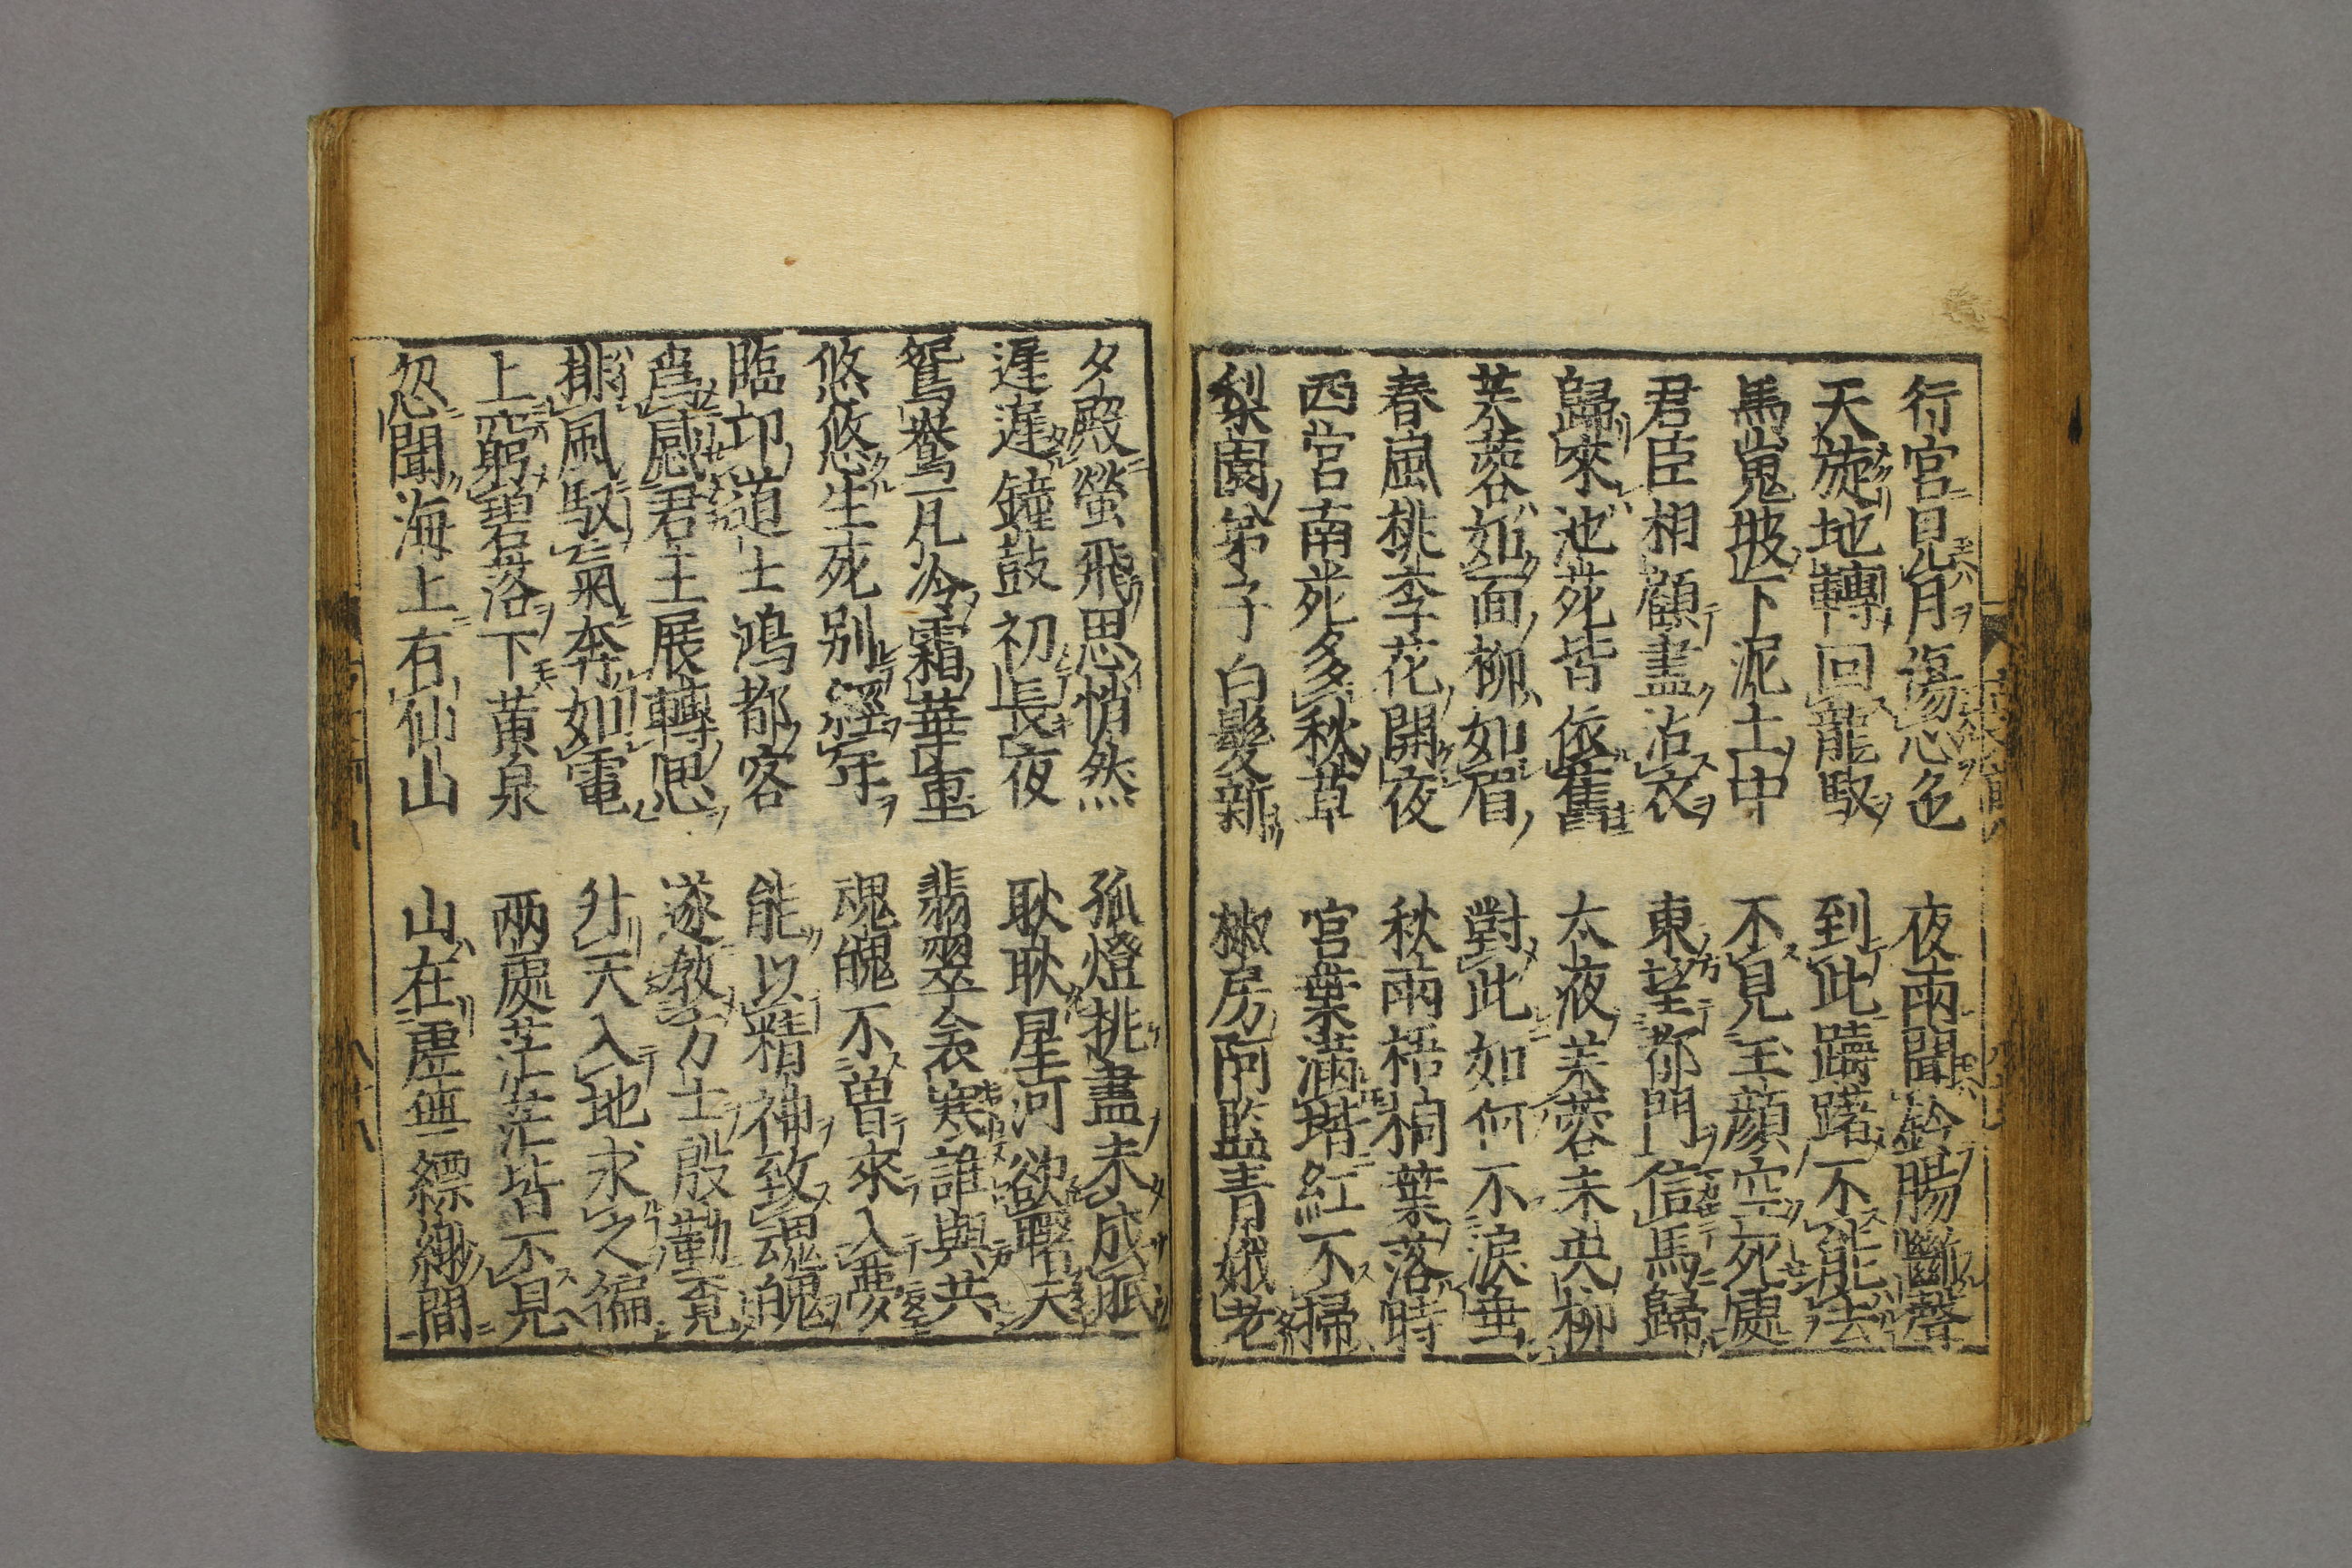 行宮見月傷心色　夜雨聞鈴腸斷聲
天旋地轉回龍馭　到此躊躇不能去
馬嵬坡下泥土中　不見玉顔空死處
君臣相顧盡沾衣　東望都門信馬歸
歸來池苑皆依舊　太液芙蓉未央柳
芙蓉如面柳如眉　對此如何不淚垂
春風桃李花開夜　秋雨梧桐葉落時
西宮南苑多秋草　宮葉滿堦紅不掃
梨園弟子白髮新　椒房阿監青娥老
夕殿螢飛思悄然　孤燈挑盡未成眠
遲遲鐘鼓初長夜　耿耿星河欲曙天
鴛鴦瓦冷霜華重　翡翠衾寒誰與共
悠悠生死別經年　魂魄不曽來入夢
臨邛道士鴻都客　能以精神致魂魄
爲感君王展轉思　遂教方士殷勤覓
排風馭氣奔如電　升天入地求之徧
上窮碧落下黄泉　两處茫茫皆不見
忽聞海上有仙山　山在虛無縹緲間